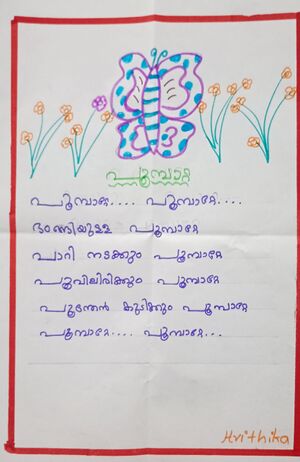 പൂമ്പാറ്റ
പൂമ്പാറ്റേ.... പൂമ്പാറ്റേ....
ഭംഗിയുള്ള പൂമ്പാറ്റേ
പാറി നടക്കും പൂമ്പാറ്റേ
പൂവിലിരിക്കും പൂമ്പാറ്റേ
പൂന്തേൻ കുടിക്കും പൂമ്പാറ്റേ
പൂമ്പാറ്റേ.... പൂമ്പാറ്റേ...
Hrithika